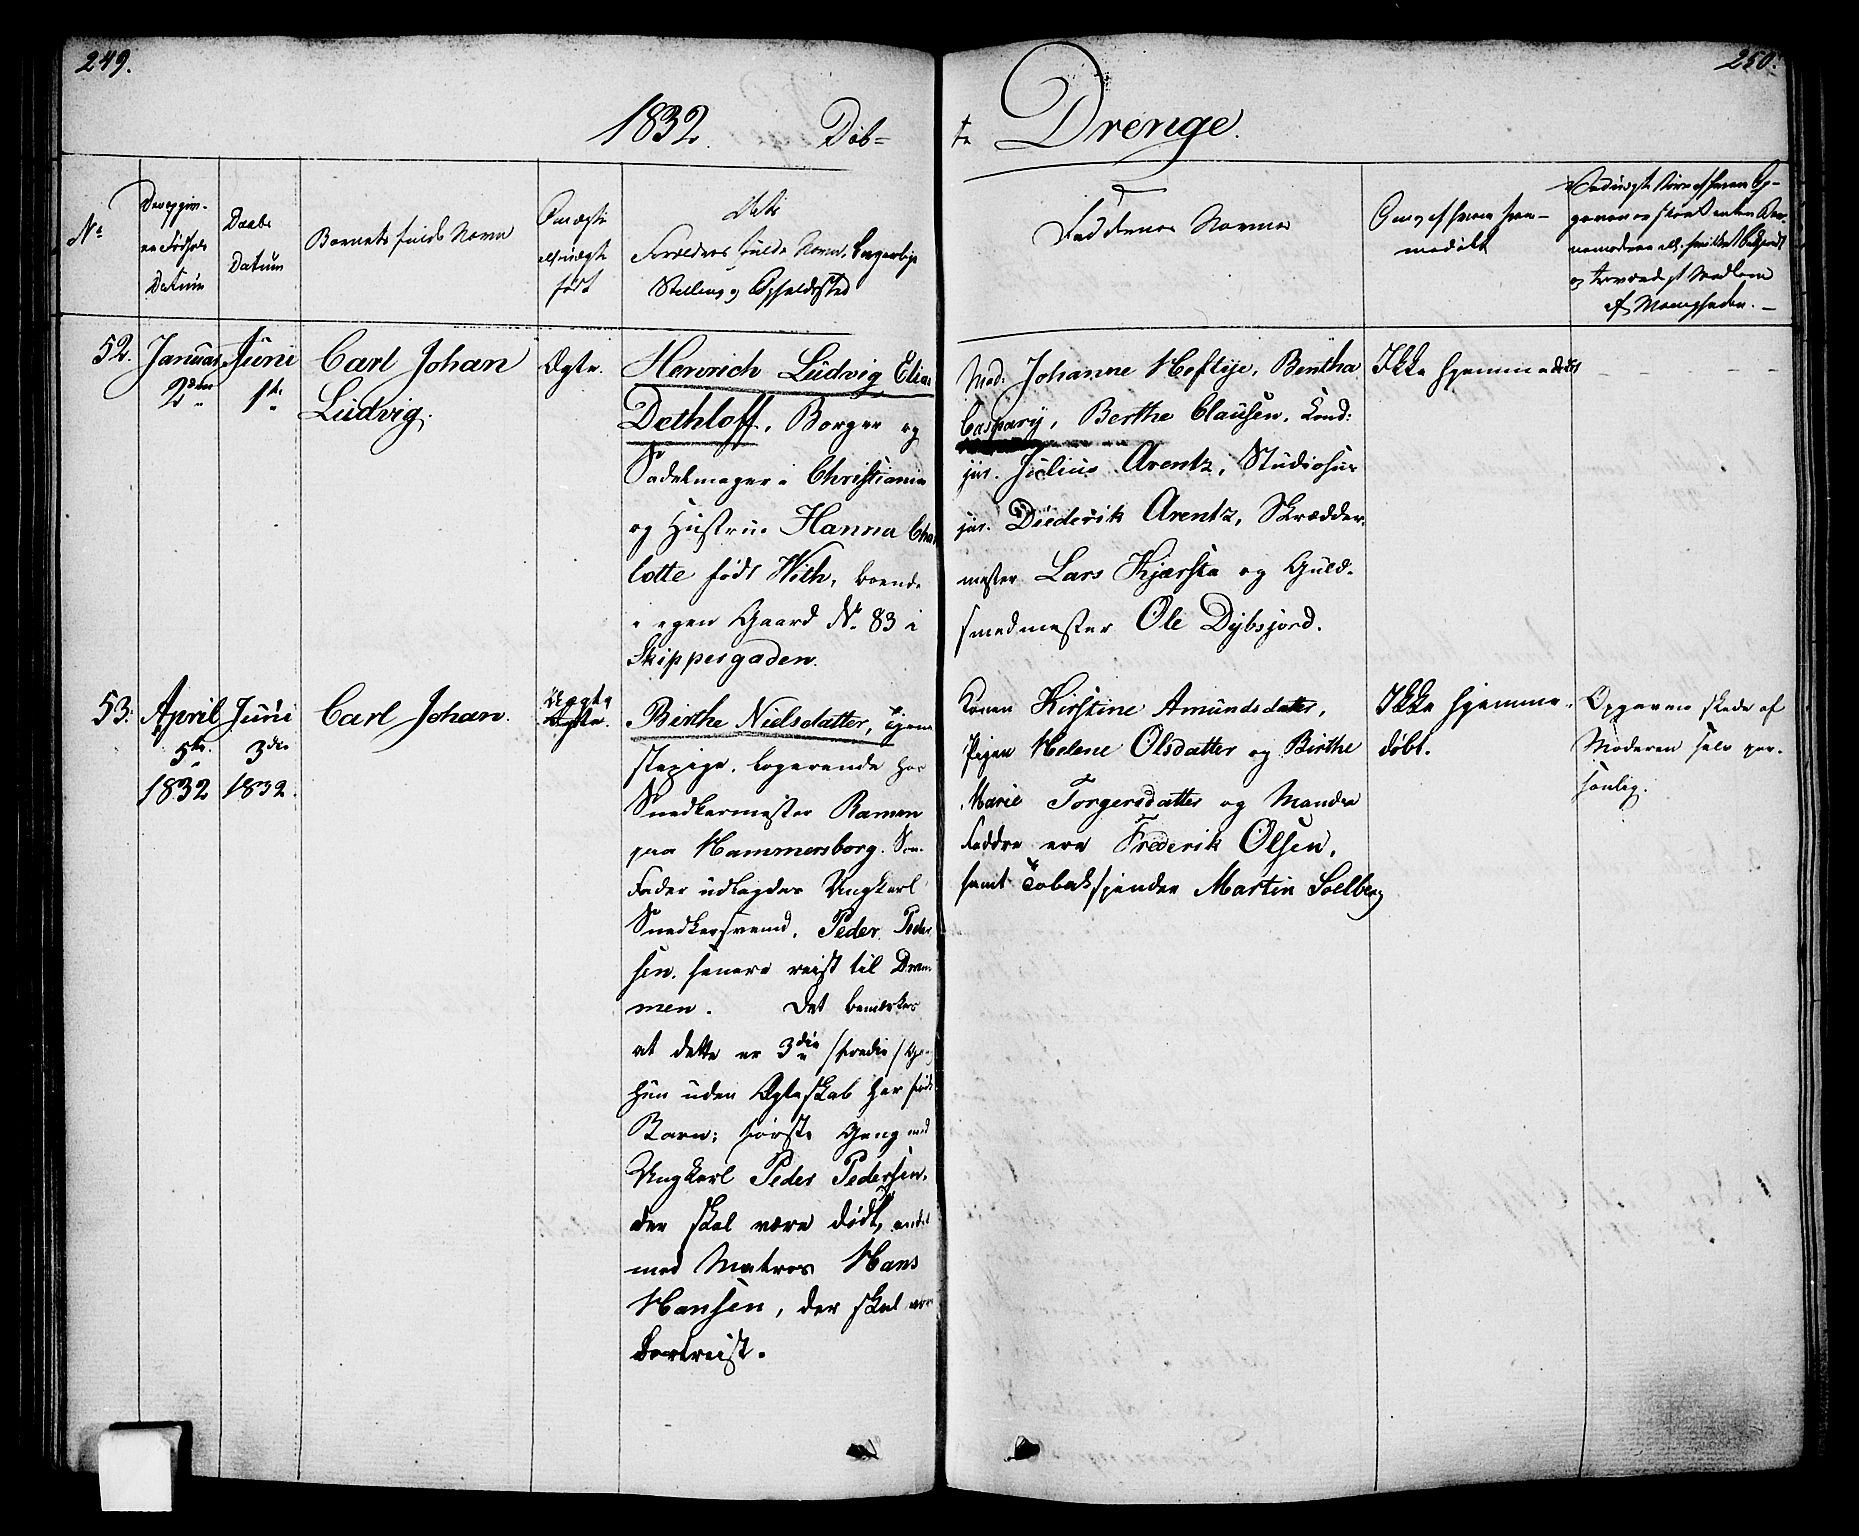 249.
250.
1832. Døb-
te Drenge.
No
Den opgiv-
ne Fødsels
Datum
Daabs
Datum
Barnets fulde Navn
Om ægte
ell. uægte
født
Dets
Forældres fulde Navn, Borgerlige
Stilling og Opholdssted
Faddernes Navne
Om og af hvem hjem-
medøbt
af Menigheden.
52.
Januar
2den
Juni
1ste
Carl Johan
Ludvig.
Ægte.
Henrich Ludvig Elias
Dethloff, Borger og
Sadelmager i Christiania
og Hustrue Hanna Char
lotte født With, boende
i egen Gaard No. 83 i
Skippergaden.
Mad: Johanne Heftye, Bentha
Caspary, Berthe Clausen, Cand:
jur. Julius Arentz, Studiosus
jur. Diederik Arentz, Skrædder
mester Lars Kjærsta og Guld-
smedmester Ole Dybsjord.
Ikke hjemmedøbt
53.
April
5te
1832
Juni
3die
1832.
Carl Johan.
Uægte
Ægte.
Birthe Nielsdatter, Tjene
stepige, logerende hos
Snedkermester Ramen
paa Hammersborg. Som
Fader udlagdes Ungkarl
Snedkersvend, Peder Peder
sen, senere reist til Dram
men. Det bemærkes
at dette er 3die /tredie/ Gang
hun uden Ægteskab har født
Barn; første Gang med
Ungkarl Peder Pedersen,
der skal være død, andet
med Matros Hans
Hansen, der skal være
bortreist.
Konen Kirstine Amundsdatter,
Pigen Helene Olsdatter og Birthe
Marie Torgersdatter og Mands
Faddre ere Frederik Olsen,
samt Tobakspinder Martin Soelberg
Ikke hjemme-
døbt.
Opgaven skede af
Moderen selv per-
sonlig.